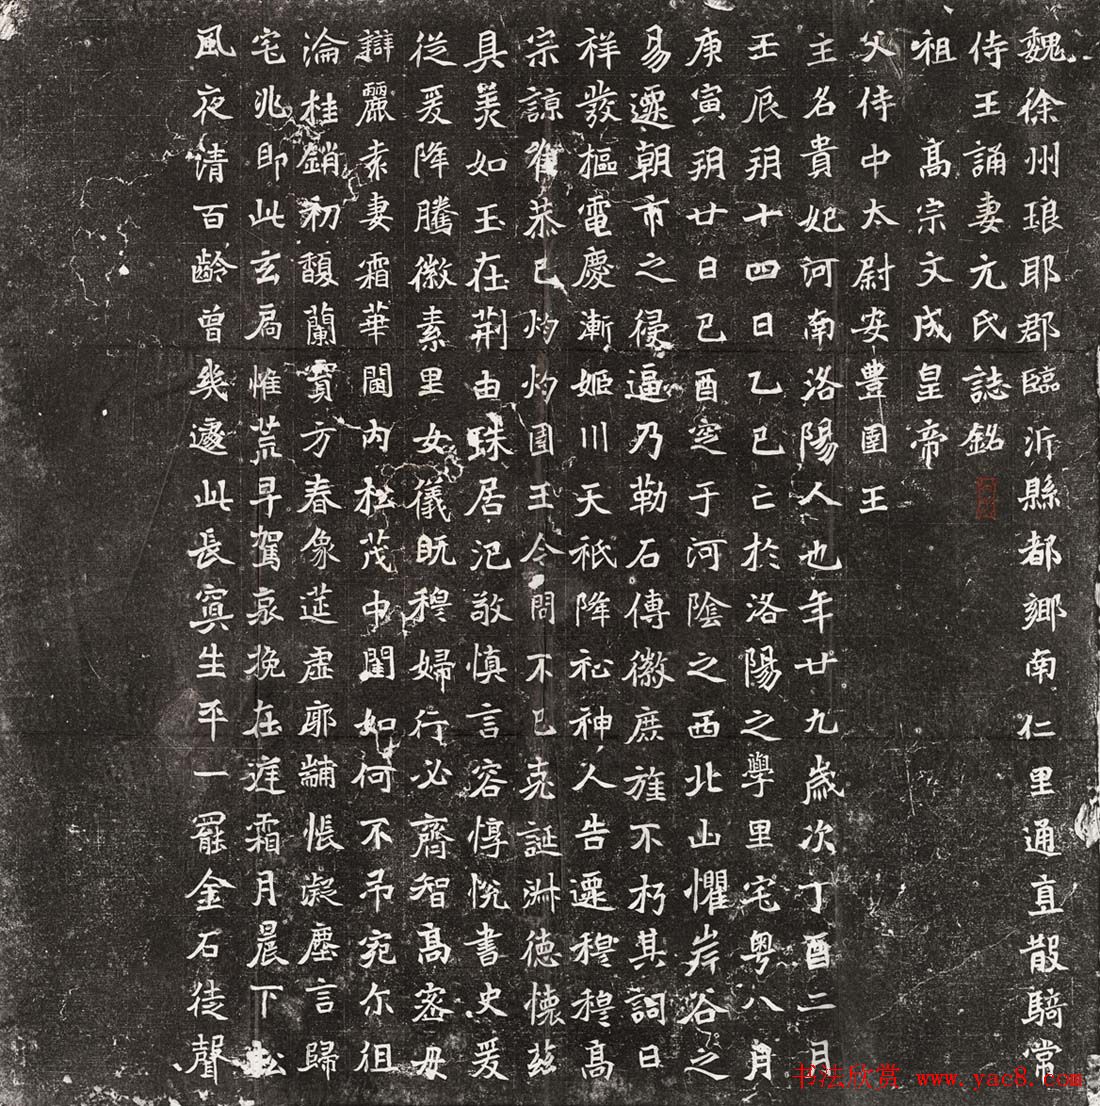 魏徐州琅耶郡臨沂縣都鄉南仁里通直散騎常
侍王誦妻元氏誌銘
祖高宗文成皇帝
父侍中太尉安豐圉王
主名貴妃河南洛陽人也年廿九歲次丁酉二月
壬辰玥十四日乙巳亡於洛陽之學里宅粤八月
庚寅玥廿日己酉窆于河陰之西北山懼岸谷之
易遷朝市之侵逼乃勒石傳徽庶旌不朽其詞曰
祥發樞電慶漸姬川天祇降祉神人告遷穆穆高
宗諒唯恭己灼灼圉王令問不已克誕淋德懷茲
具美如玉在荊由珠居汜敬慎言容惇悅書史爰
從爰降騰徽素里女儀既穆婦行必齊智高密母
辯麗袁妻霜華閫內松茂中閨如何不弔宛尔徂
淪桂銷初馥蘭實方春象筵虛廓黼悵凝塵言歸
宅兆即此玄扃惟荒早駕哀挽在庭霜月晨下松
風夜清百齡曾幾遽此長冥生平一罷金石徒聲
书法欣赏 www.yac8.com